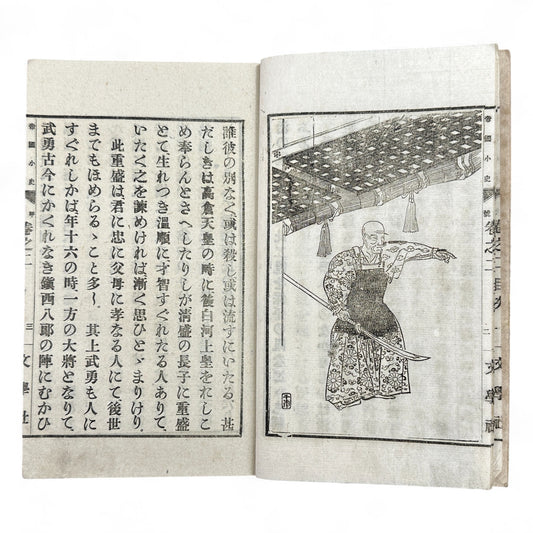 帝國小史 號 卷之二 二 文學社
誰彼の別なく、或は殺し或は流すにいたる、甚
だしきは高倉天皇の時に後白河上皇をおしこ
め奉らんとさへしたりしが清盛の長子に重盛
とて生れつき溫順に才智すぐれたる人ありて、
いたく之を諫めければ漸く思ひとゞまりけり、
此重盛は君に忠に父母に孝なる人にて後世
までもほめらるゝこと多し、其上武勇も人に
すぐれしかば、年十六の時一方の大將となりて、
武勇古今にかくれなき鎭西八郎の陣にむかひ
帝國小史 甲 卷之二 三 文學社